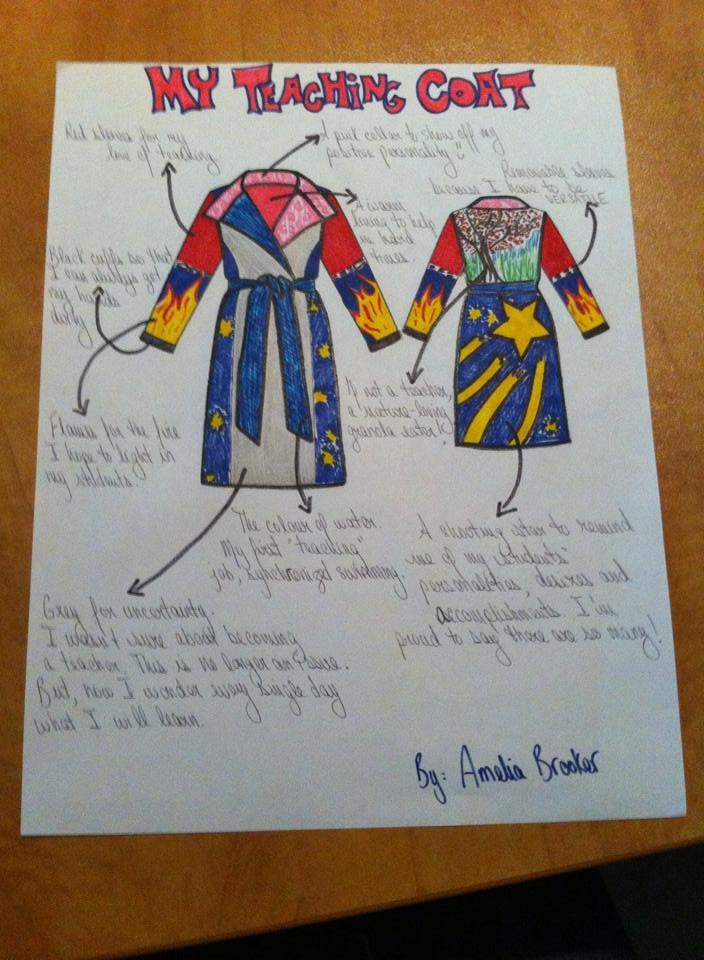 MY TEACHING COAT
Red sleeves for my
love of teaching
A pink collar to show off my
positive personality
Removable sleeves
because I have to be
VERSATILE
A warm
lining to help
in hard
times
Black cuffs so that
I can always get
my hands
dirty
Flames for the fire
I hope to light in
my students.
If not a teacher,
a nature-loving
granola eater!
The colour of water.
My first "teaching"
job, synchronized swimming.
A shooting star to remind
me of my students'
personalities, desires and
accomplishments. I'm
proud to say there are so many!
Grey for uncertainty.
I wasn't sure about becoming
a teacher. This is no longer an issue.
But, now I wonder every single day
what I will learn.
By: Amelia Brooker